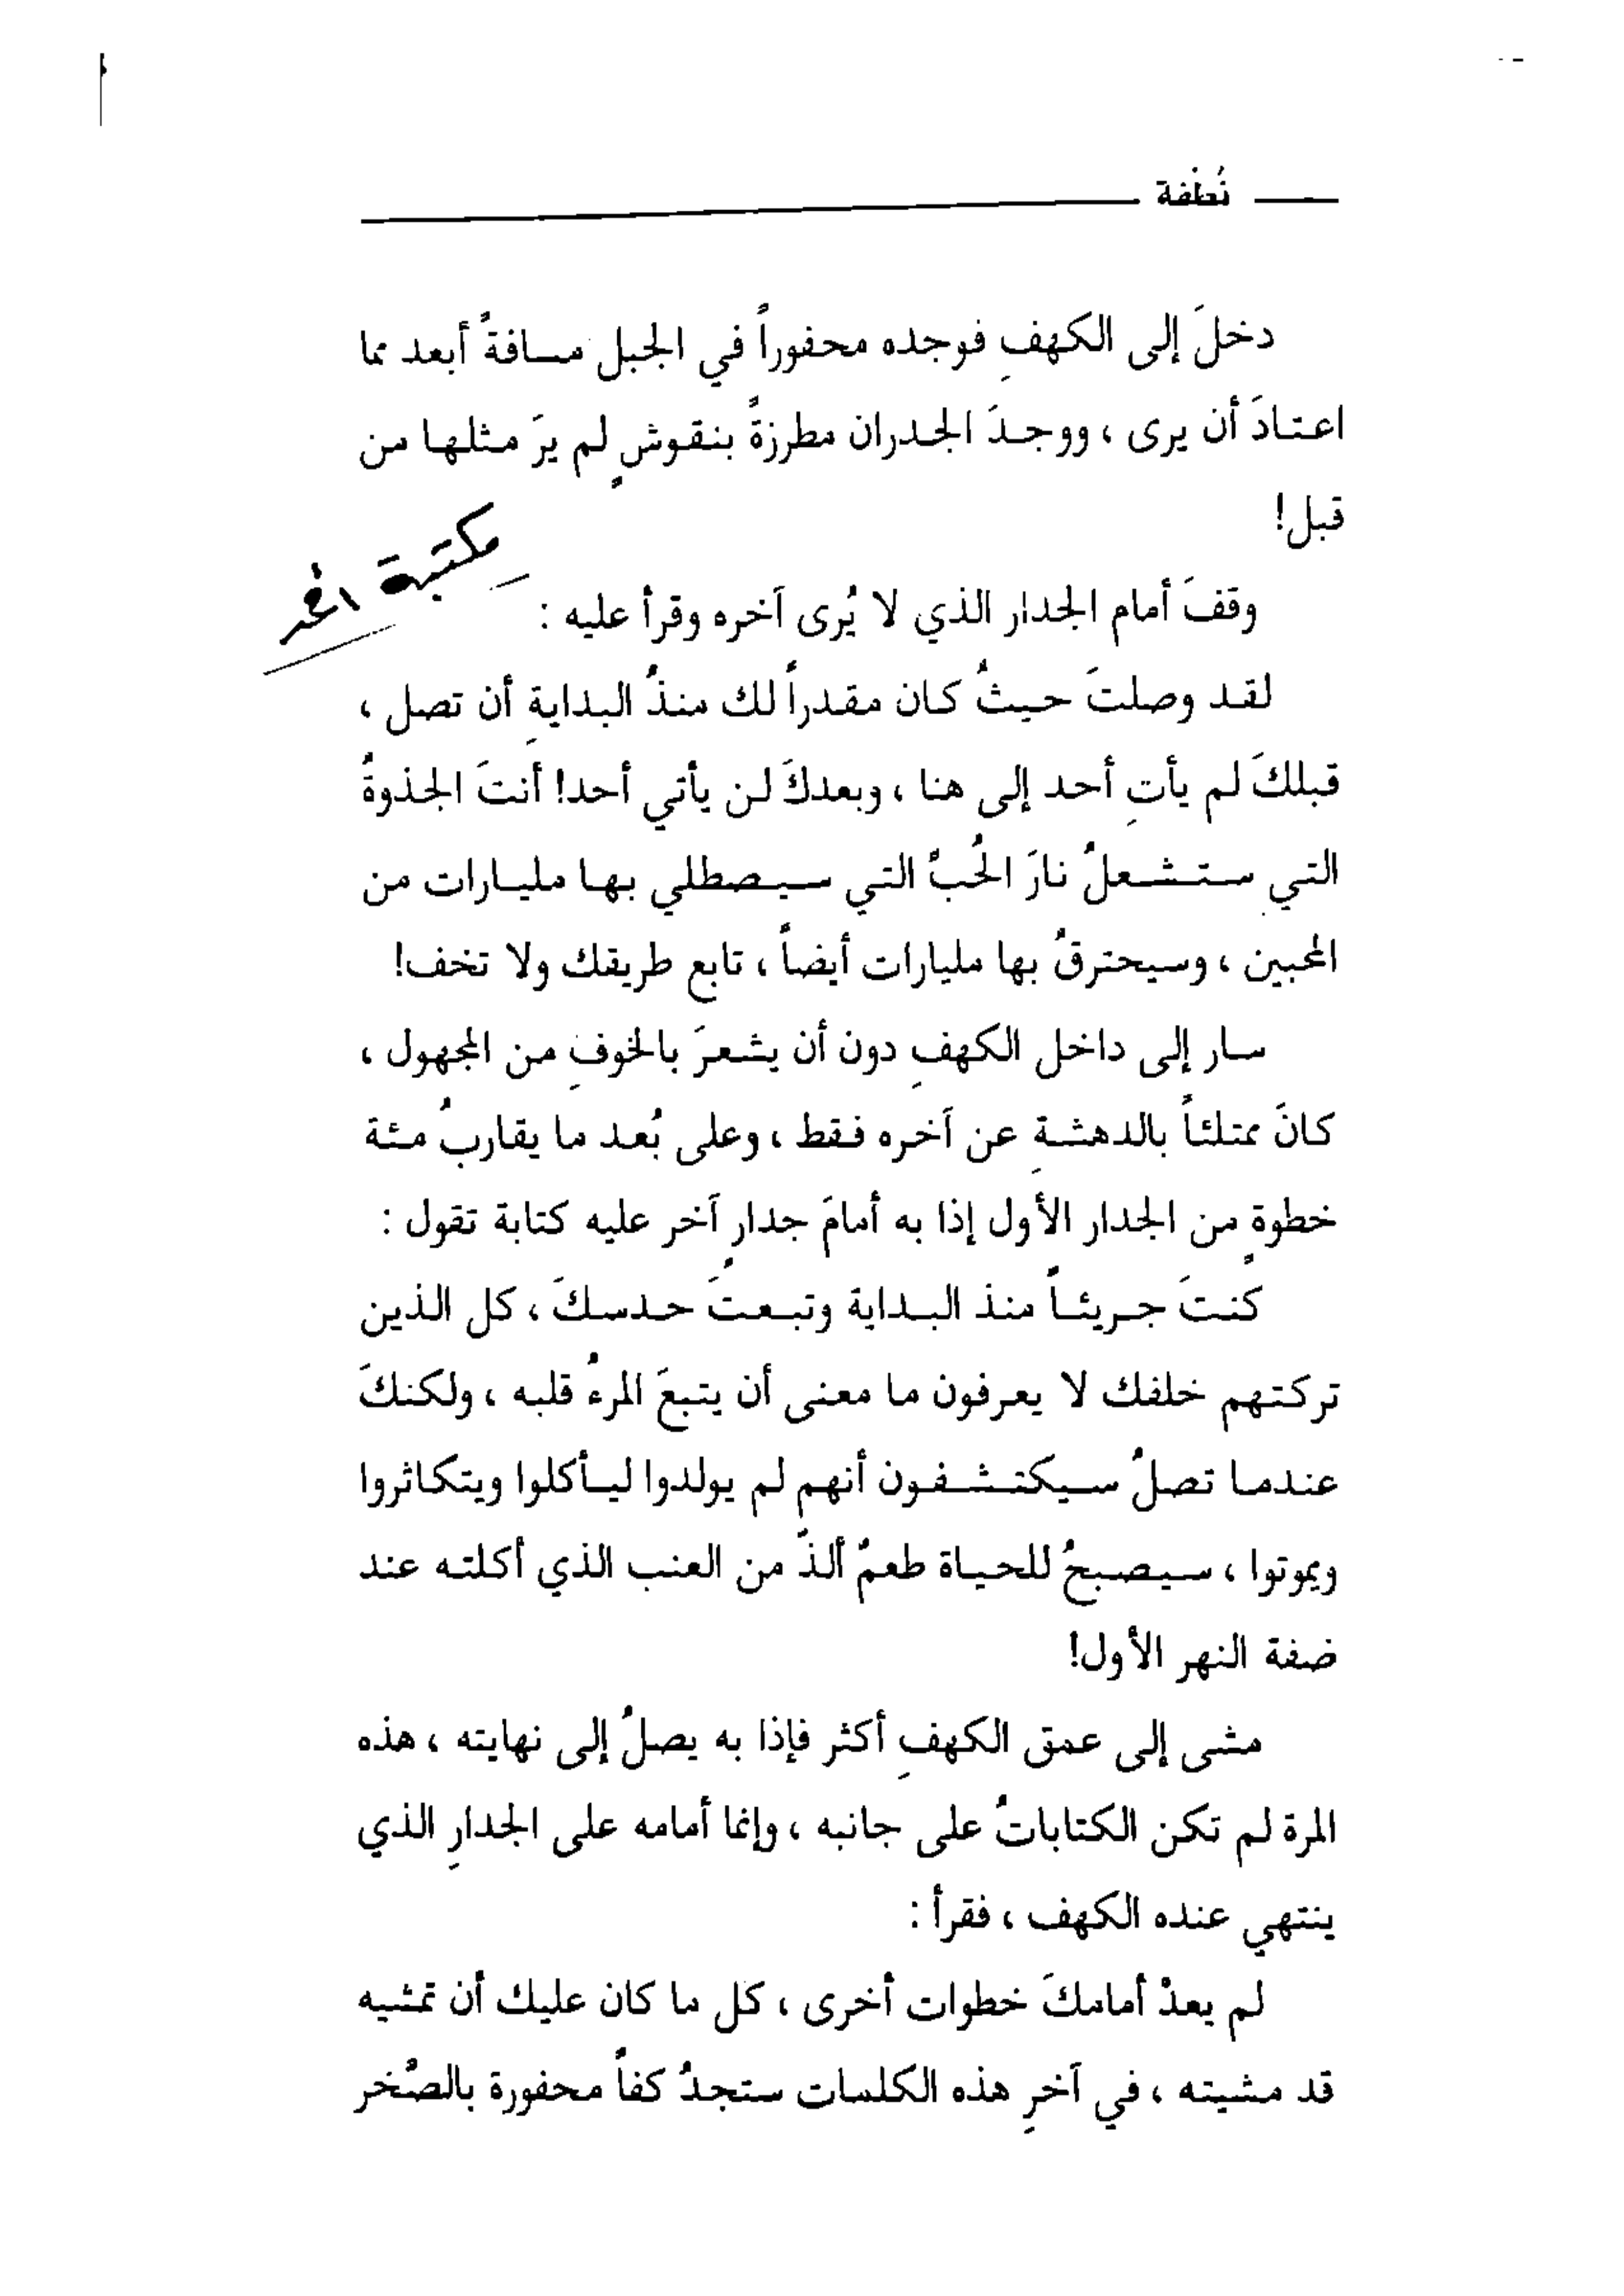 نُطْفة
دخلَ إلى الكهفِ فوجده محفوراً في الجبل مسافةً أبعد مما
اعتادَ أن يرى ، ووجدَ الجدران مطرزةً بنقوشٍ لم يرَ مثلها من
قبل!
مكتبة
وقفَ أمام الجدار الذي لا يُرى آخره وقرأ عليه :
لقد وصلتَ حيثُ كان مقدراً لك منذُ البدايةِ أن تصل ،
قبلكَ لم يأتِ أحد إلى هنا ، وبعدكَ لن يأتي أحد! أنتَ الجذوةُ
التي ستشعلُ نارَ الحُبِّ التي سيصطلي بها مليارات من
المحبين ، وسيحترقُ بها مليارات أيضاً ، تابع طريقك ولا تخف!
سار إلى داخل الكهفِ دون أن يشعرَ بالخوفِ من المجهول ،
كانَ ممتلئاً بالدهشةِ عن آخره فقط ، وعلى بُعد ما يقاربُ مئة
خطوةٍ من الجدار الأول إذا به أمامَ جدارٍ آخر عليه كتابة تقول :
كنتَ جريئاً منذ البداية وتبعتَ حدسكَ ، كل الذين
تركتهم خلفك لا يعرفون ما معنى أن يتبعَ المرءُ قلبه ، ولكنكَ
عندما تصلُ سيكتشفون أنهم لم يولدوا ليأكلوا ويتكاثروا
ويموتوا ، سيصبحُ للحياة طعمٌ ألذّ من العنب الذي أكلته عند
ضفة النهر الأول!
مشى إلى عمق الكهفِ أكثر فإذا به يصلُ إلى نهايته ، هذه
المرة لم تكن الكتاباتُ على جانبه ، وإنما أمامه على الجدارِ الذي
ينتهي عنده الكهف ، فقرأ :
لم يعدْ أمامكَ خطوات أخرى ، كل ما كان عليك أن تمشيه
قد مشيته ، في آخرِ هذه الكلمات ستجدُ كفاً محفورة بالصّخر